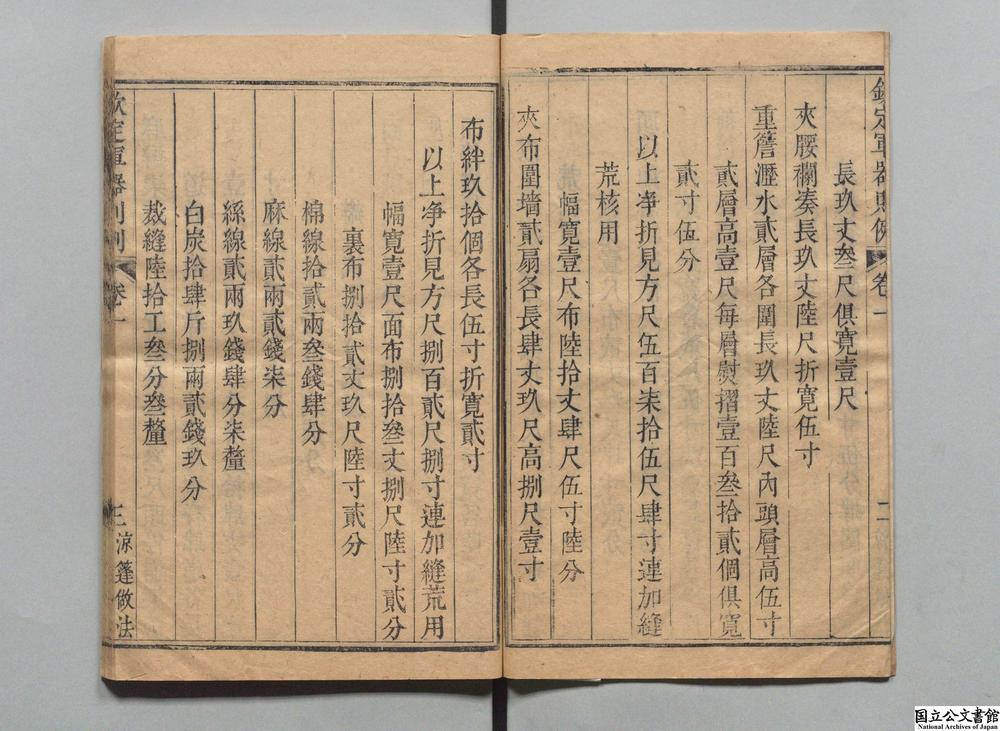 欽定軍器則例
卷一
二
長玖丈叁尺俱寬壹尺
夾腰襴湊長玖丈陸尺折寬伍寸
重簷瀝水貳層各圍長玖丈陸尺內頭層高伍寸
貳層高壹尺每層熨摺壹百叁拾貳個俱寬
貳寸伍分
以上凈折見方尺伍百柒拾伍尺肆寸連加縫
荒核用
幅寬壹尺布陸拾丈肆尺伍寸陸分
夾布圍墻貳扇各長肆丈玖尺高捌尺壹寸
布絆玖拾個各長伍寸折寬貳寸
以上凈折見方尺捌百貳尺捌寸連加縫荒用
幅寬壹尺面布捌拾叁丈捌尺陸寸貳分
裏布捌拾貳丈玖尺陸寸貳分
棉線拾貳兩叁錢肆分
麻線貳兩貳錢柒分
絲線貳兩玖錢肆分柒釐
白炭拾肆斤捌兩貳錢玖分
裁縫陸拾工叁分叁釐
欽定軍器則例
卷一
三
涼篷做法
国立公文書館
National Archives of Japan